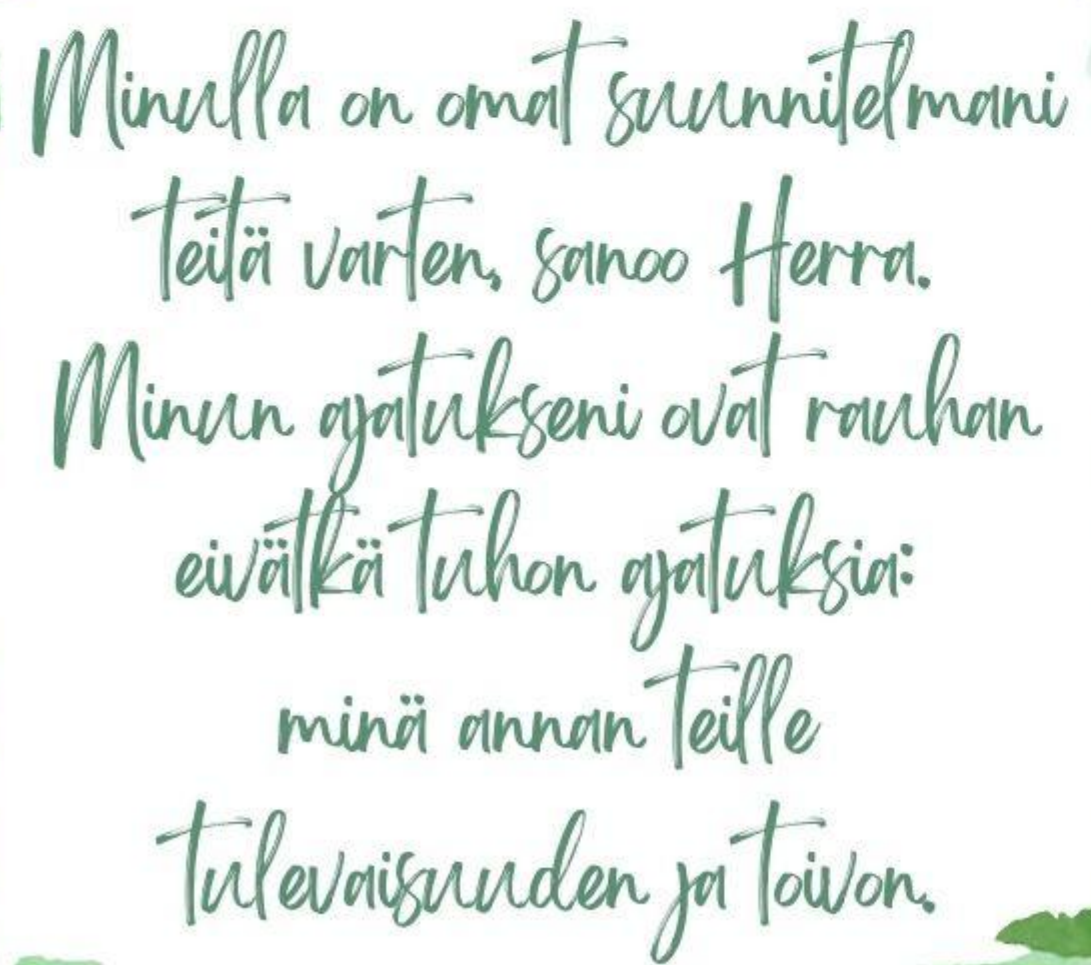 Minulla on omat suunnitelmani
teitä varten, sanoo Herra.
Minun ajatukseni ovat rauhan
eivätkä tuhon ajatuksia:
minä annan teille
tulevaisuuden ja toivon.